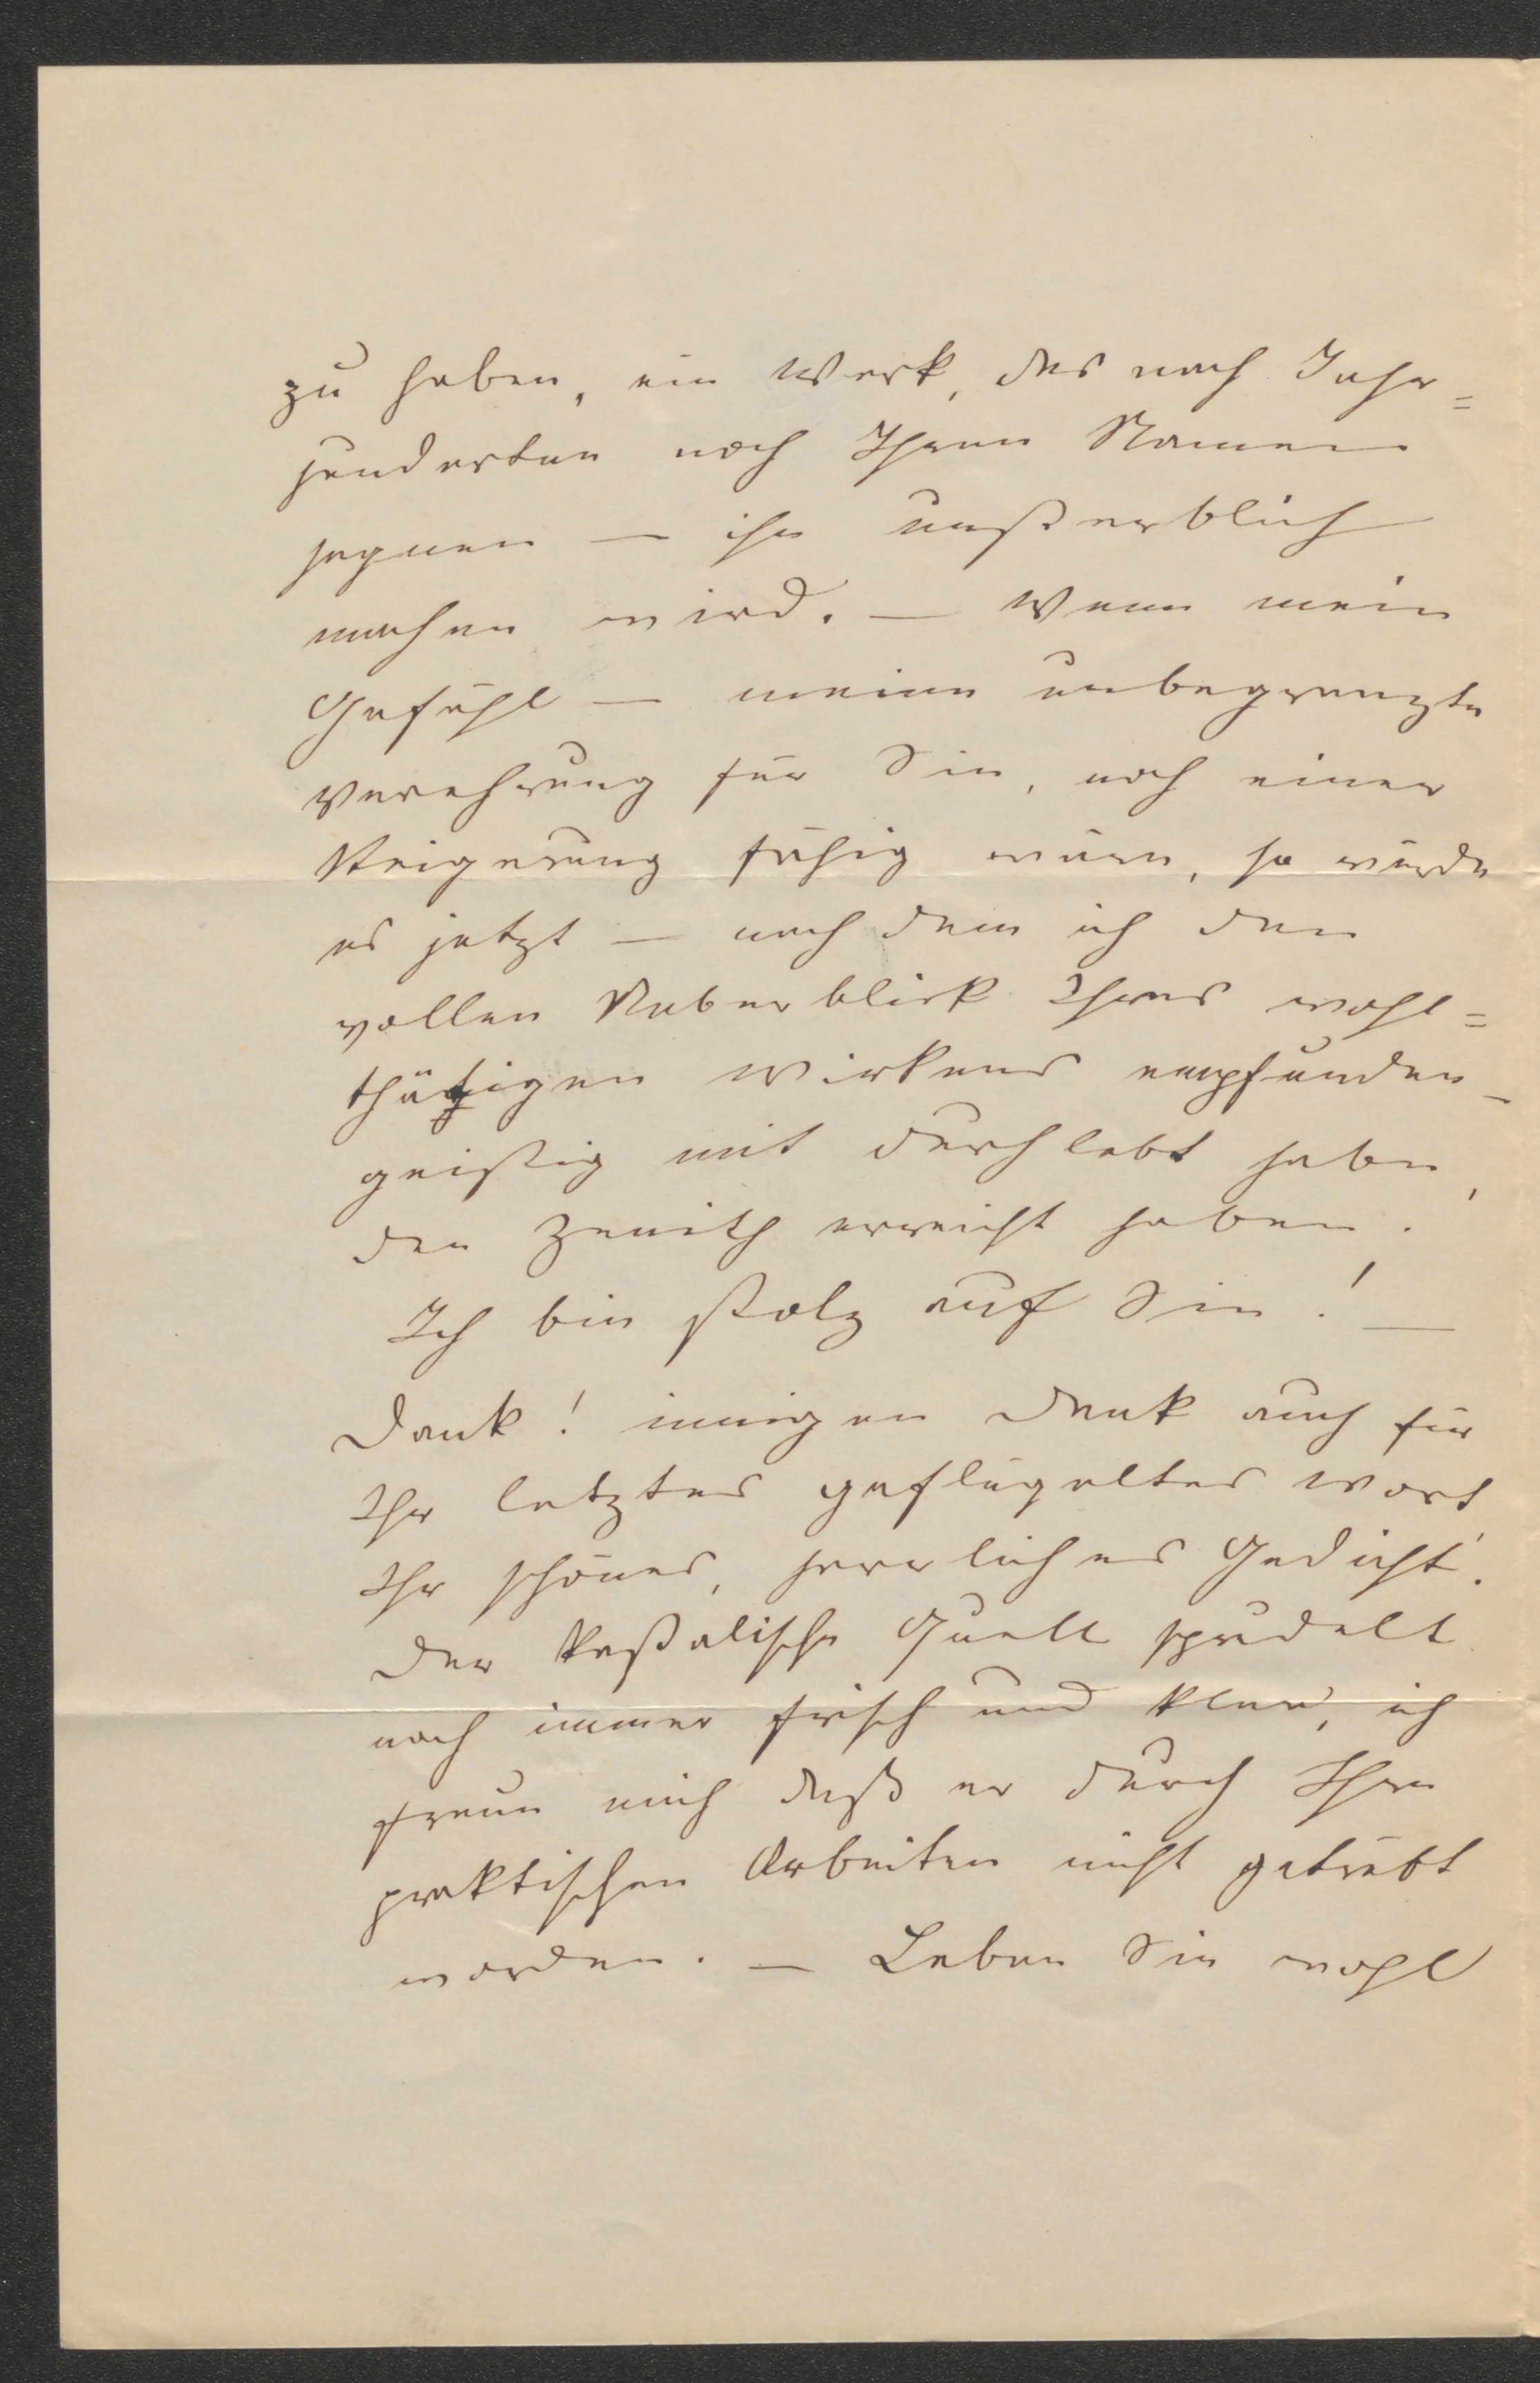 zu haben, ein Werk, das nach Jahr=
hunderten noch Ihren Namen
segnen — ihn unsterblich
machen wird. — Wenn mein
Gefühl — meine unbegrenzte
Verehrung für Sie, noch einer
Steigerung fähig wäre, so würde
es jetzt — nach dem ich den
vollen Ueberblick Ihres wohl=
thätigen Wirkens empfunden —
geistig mit durchlebt habe,
den Zenith erreicht haben.
Ich bin stolz auf Sie! —
Dank! innigen Dank auch für
Ihr letztes geflügeltes Wort,
Ihr schönes, herrliches Gedicht.
Der kastalische Quell sprudelt
noch immer frisch und klar, ich
freue mich daß er durch Ihre
praktischen Arbeiten nicht getrübt
worden. — Leben Sie wohl